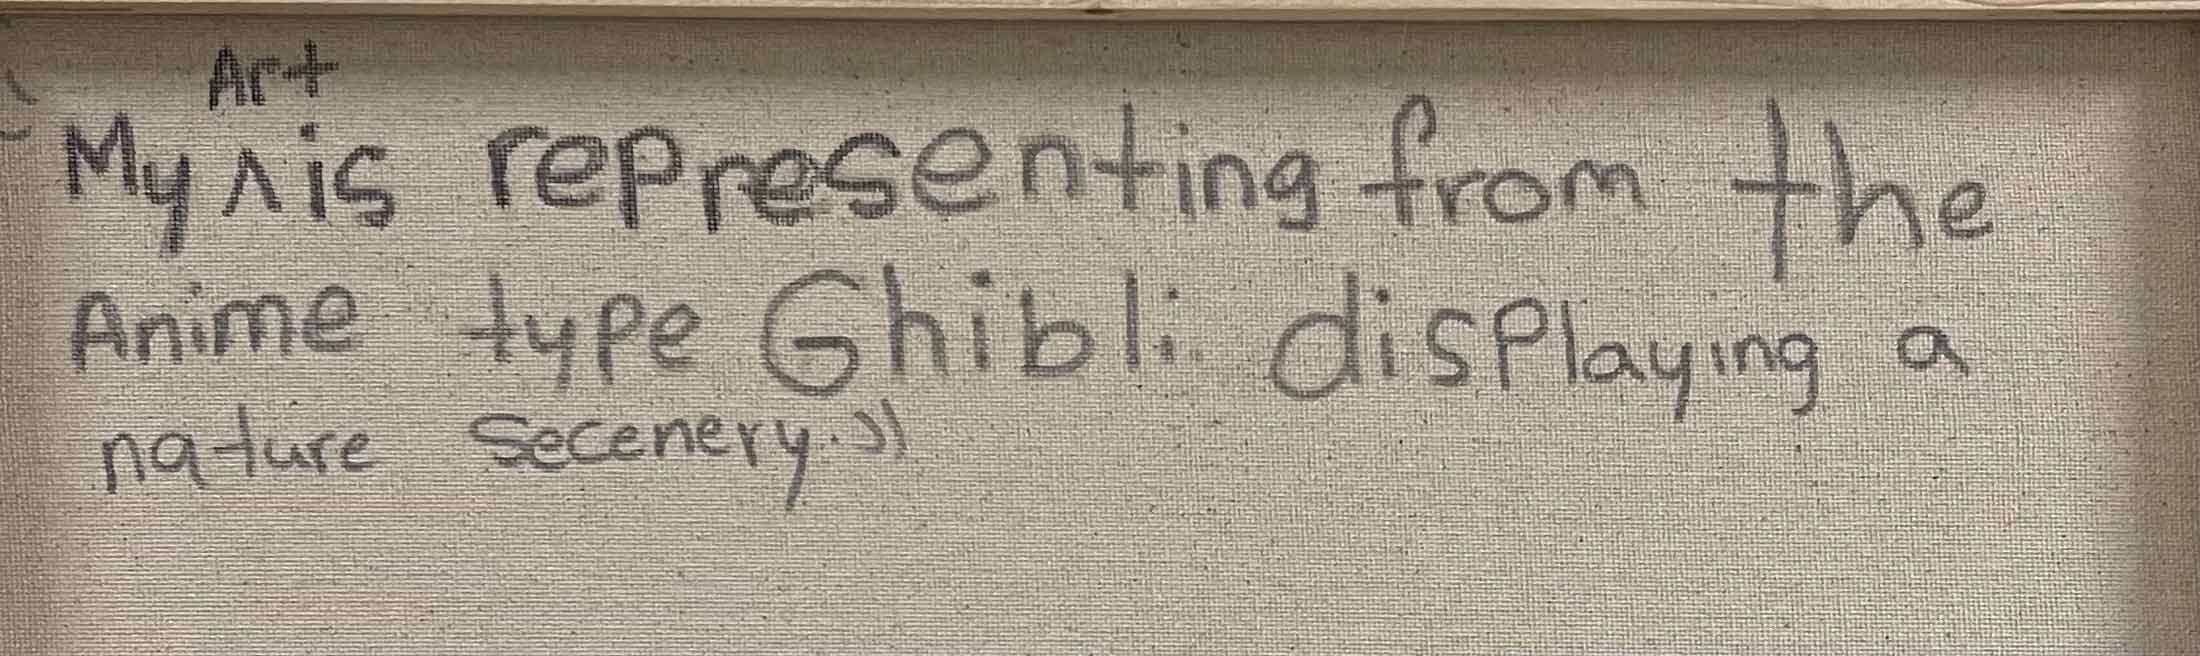 My ^Art is representing from the
Anime type Ghibli displaying a
nature Secenery."